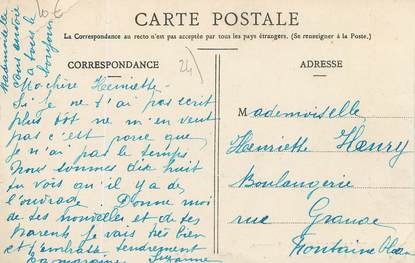 CARTE POSTALE
La Correspondance au recto n'est pas acceptée par tous les pays étrangers. (Se renseigner à la Poste.)
CORRESPONDANCE
ADRESSE
10 €
24)
Ma chère Henriette
Si je ne t'ai pas écrit
plus tôt ne m'en veut
pas c'est parce que
je n'ai pas le temps.
Nous sommes dix huit
tu vois qu'il y a de
l'ouvrage Donne moi
de tes nouvelles et de tes
Parents Je vais très bien
et t'embrasse tendrement
ta marraine Suzanne
Mademoiselle
Henriette Henry
Boulangerie
rue Grande
Fontaine